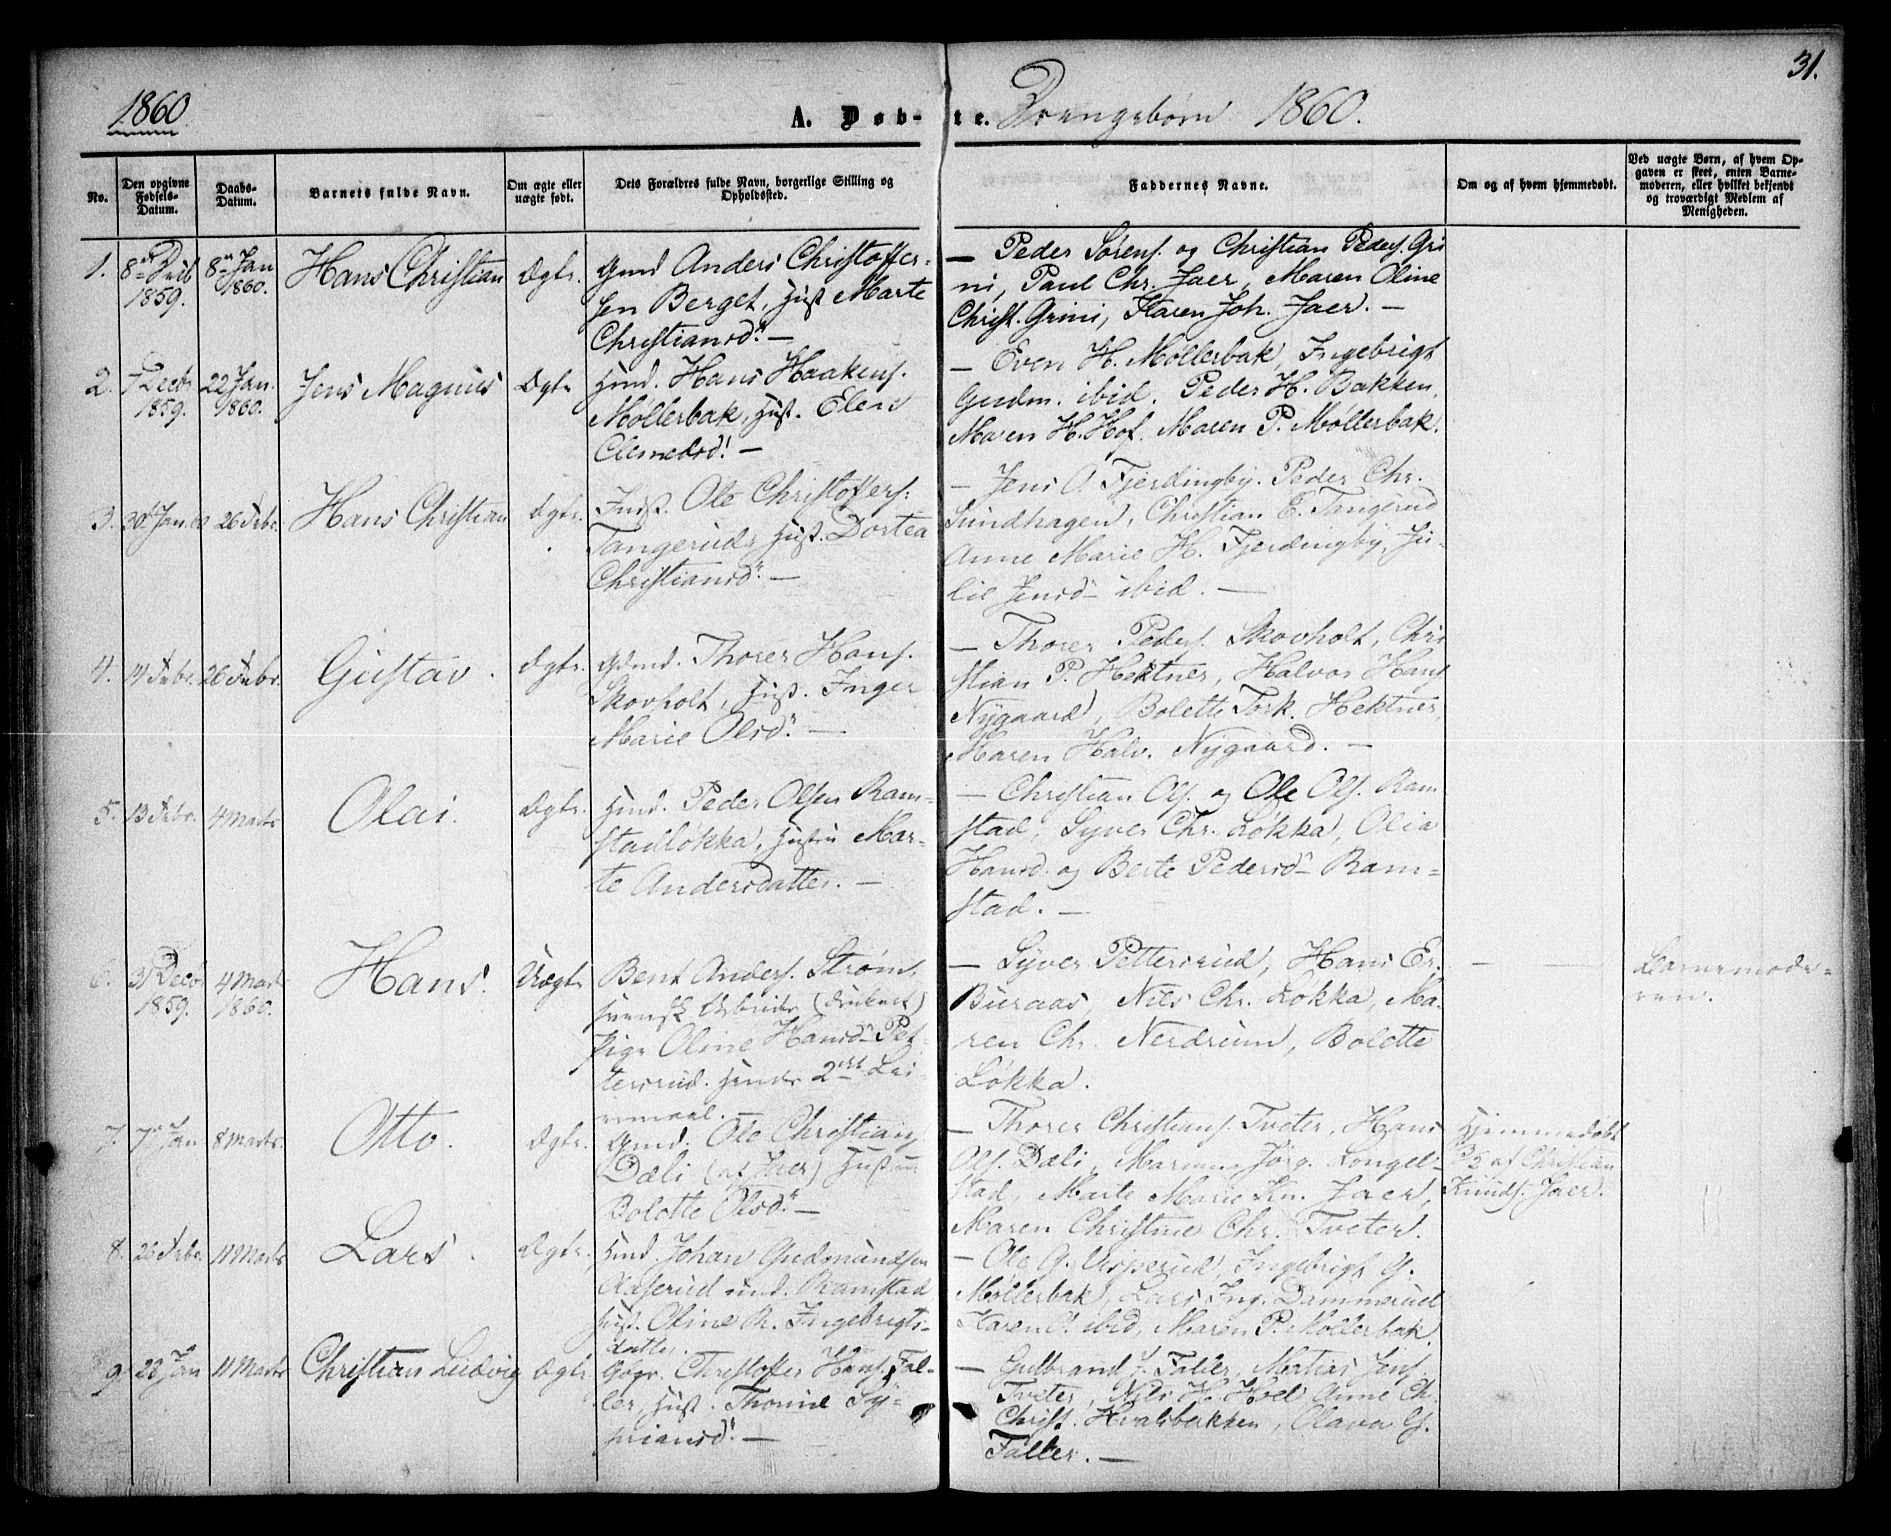 31.
1860
A. Døb- te. Drengebørn 1860.
No.
Den opgivne Fødsels-Datum.
Daabs-Datum.
Barnets fulde Navn.
Om ægte eller uægte født.
Dets Forældres fulde Navn, borgerlige Stilling og Opholdssted.
Faddernes Navne.
Om og af hvem hjemmedøbt.
Ved uægte Børn, af hvem Opgaven er skeet, enten Barnemoderen, eller hvilket bekjendt og troværdigt Medlem af Menigheden.
1. 8 1859. 8 Jan 1860. Hans Christian Ægte.
Gmd Anders Christoffer-
sen Berget, Hust Marte
Christiansd. —
— Peder Sørens. og Christian Peders. Gri
ni, Paul Chr. Jaer, Maren Oline
Christ. Grini, Karen Joh. Jaer. —
2. 7 Decbr 1859. 22 Jan. 1860. Jens Magnus Ægte
Hmd. Hans Haakens.
Møllerbak, Hust. Elen
Clemetsd. —
— Even H. Møllerbak, Ingebrigt
Gudm. ibid. Peder H. Bakken,
Maren H. Hof. Maren P. Møllerbak.
3. 30 Jan. 26 Febr. Hans Christian Ægte.
Indst. Ole Christoffers.
Tangerud, Hust. Dortea
Christiansd. —
— Jens O. Fjerdingby. Peder Chr.
Sundhagen, Christian E. Tangerud
Anne Marie H. Fjerdingby, Ju-
lie Jensd ibid. —
4. 14 Febr. 26 Febr. Gustav. Ægte.
Gdmd. Thorer Hans.
Skovholt, Hust. Inger
Marie Olsd. —
— Thorer Peders. Skovholt, Chri
stian P. Hektner, Halvor Hans
Nygaard, Bolette Tork. Hektner,
Maren Halv. Nygaard. —
5. 13 Febr. 4 Marts Olai. Ægte.
Hmd. Peder Olsen Ram-
stadløkka, Hustru Mar-
te Andersdatter. —
— Christian Ols. og Ole Ols. Ram
stad, Syver Chr. Løkka, Olia
Hansd. og Berte Pedersd Ram-
stad. —
6. 31 Decbr 1859. 4 Marts 1860. Hans. Uægte
Bent Anders. Strøm,
svensk Arbeider
Pige Oline Hansd Pet-
tersrud. Hendes 2det Lei-
ermaal. —
— Syver Pettersrud, Hans Er.
Buraas, Nils Chr. Løkka, Ma-
ren Chr. Nerdrum, Bolette
Løkka.
Barnemode-
ren.
7. 7 Jan 8 Marts. Otto. Ægte.
Gmd. Ole Christian
Dæli (af Jaer) Hustru
Bolette Olsd. —
— Thorer Christians. Tveter, Hans
Ols. Dæli, Jørg. Longel-
stad, Marte Marie Kn. Jaer,
Maren Christine Chr. Tveter.
Hjemmedøbt
af Christian
Knuds. Jaer.
8. 26 Febr. 11 Marts Lars. Ægte.
Hmd. Johan Gudmundsen
und. Ramstad
Hust. Oline R. Ingebrigts-
datter.
— Ole G. Ingebrigt G.
Møllerbak, Lars Ing. Dammerud
Karen O. ibid, Maren P. Møllerbak.
9. 22 Jan 11 Marts Christian Ludvig Ægte
Christoffer Hans. Fal-
ler, Hust. Thorine Sy-
—
— Gulbrand J. Faller, Matias Jens
Tveter, Nils H. Hoel Anne Ch.
Christ. Hvalsbakken, Olava G.
Faller. —